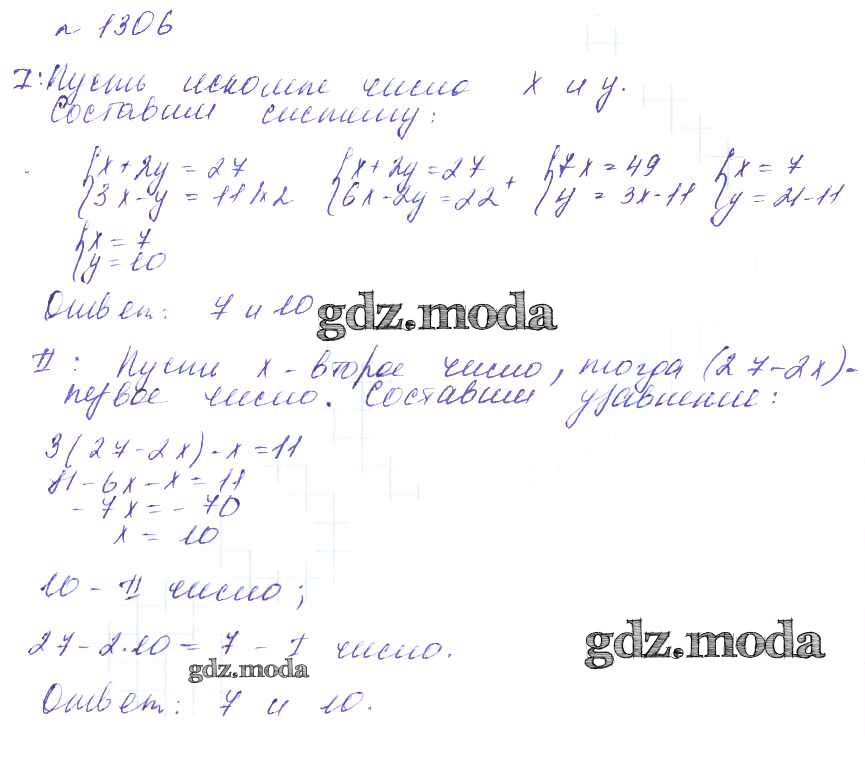 № 1306
I: Пусть искомые число x и y.
Составим систему:
{x+2y=27 {x+2y=27 + {7x=49 {x=7
{3x-y=11 |x2 {6x-2y=22 {y=3x-11 {y=21-11
{x=7
{y=10
Ответ: 7 и 10
gdz.moda
II: Пусть x - второе число, тогда (27-2x)-
первое число. Составим уравнение:
3(27-2x)-x=11
81-6x-x=11
-7x=-70
x=10
10 - II число;
27-2·10=7 - I число.
gdz.moda
gdz.moda
Ответ: 7 и 10.